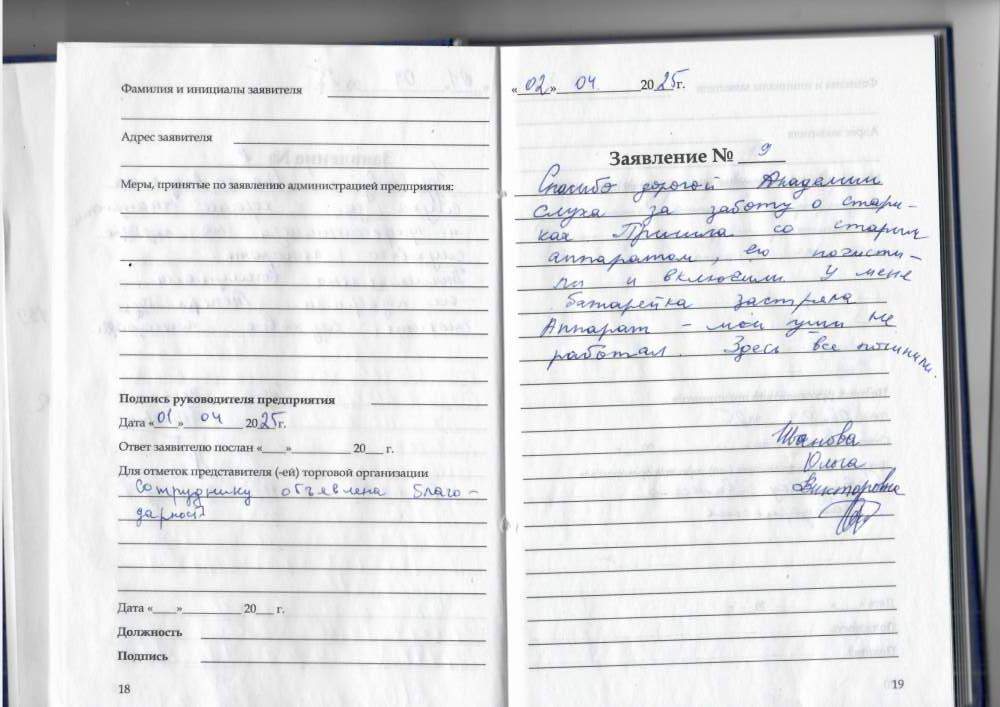 Фамилия и инициалы заявителя
Адрес заявителя
Меры, принятые по заявлению администрацией предприятия:
Подпись руководителя предприятия
Дата «01» 04 2025г.
Ответ заявителю послан «____»__________ 20___ г.
Для отметок представителя (-ей) торговой организации
Сотруднику объявлена благо-
дарность
Дата «____»__________ 20___ г.
Должность
Подпись
18
«02» 04 2025г.
Заявление № 9
Спасибо дорогой Академии
Слуха за заботу о стари-
ках Пришла со старым
аппаратом, его почисти-
ли и включили У меня
батарейка застряла
Аппарат - мои уши не
работал. Здесь все починили.
Иванова
Ольга
Викторовна
19